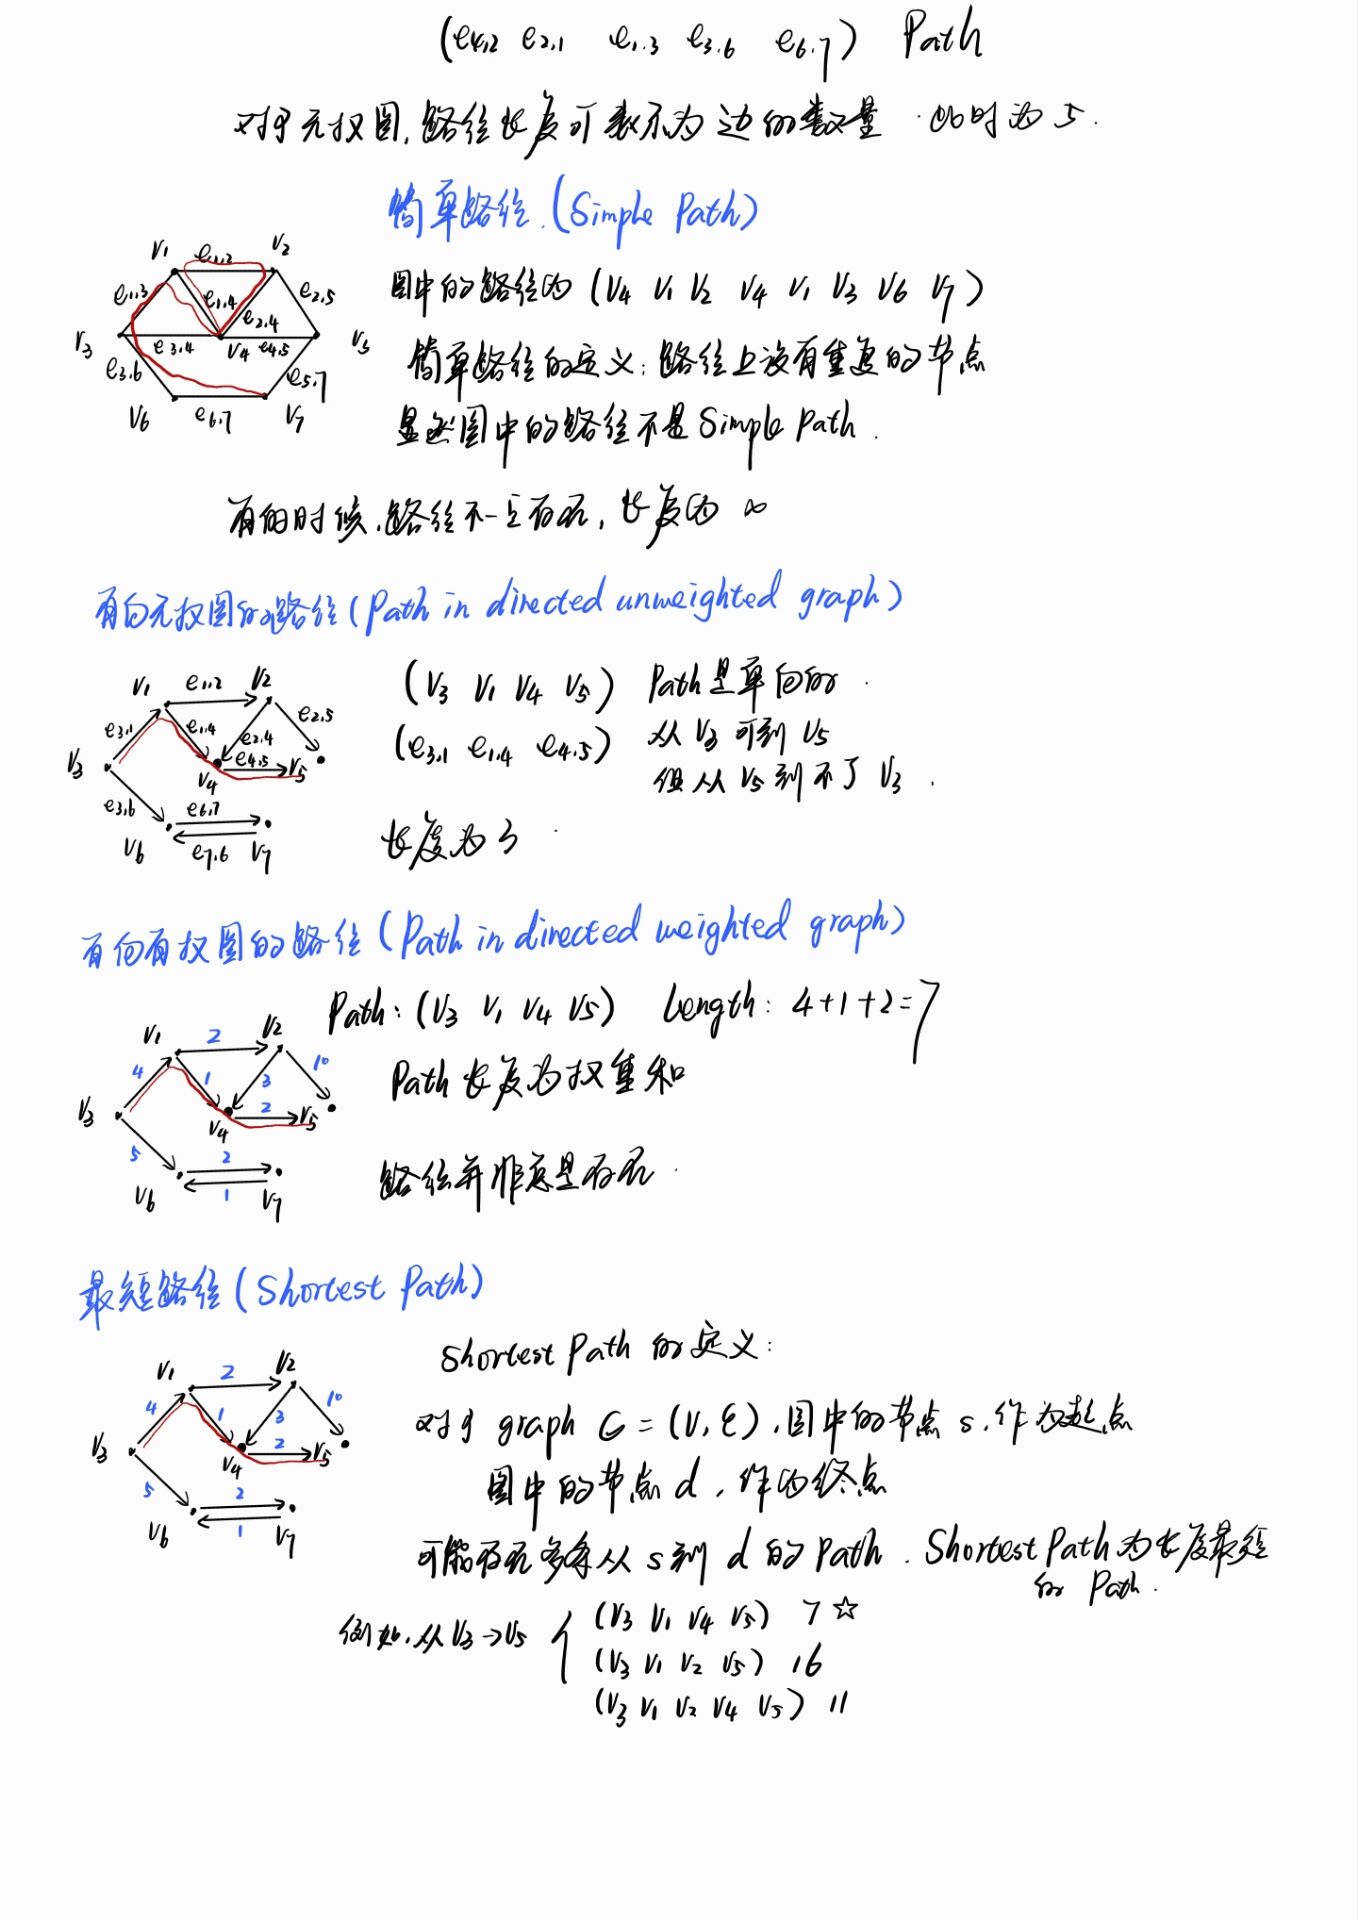 (e4,2 e2,1 e1,3 e3,6 e6,7) Path
对于无权图,路径长度可表示为边的数量.此时为5.
简单路径.(Simple Path)
v1 e1,2 v2
e1,3 e1,4 e2,4 e2,5
v3 e3,4 v4 e4,5 v5
e3,6 e5,7
v6 e6,7 v7
图中的路径为 (v4 v1 v2 v4 v1 v3 v6 v7)
简单路径的定义:路径上没有重复的节点
显然图中的路径不是Simple Path.
有的时候,路径不一定存在,长度为 ∞
有向无权图的路径(Path in directed unweighted graph)
v1 e1,2 v2
e3,1 e1,4 e2,4 e2,5
v3 v4 e4,5 v5
e3,6 e6,7
v6 e7,6 v7
(v3 v1 v4 v5) Path是单向的.
(e3,1 e1,4 e4,5) 从 v3 可到 v5
但从 v5 到不了 v3.
长度为3.
有向有权图的路径(Path in directed weighted graph)
v1 2 v2
4 1 3 10
v3 v4 2 v5
5 2
v6 1 v7
Path: (v3 v1 v4 v5) Length: 4+1+2=7
Path 长度为权重和
路径并非总是存在.
最短路径(Shortest Path)
v1 2 v2
4 1 3 10
v3 v4 2 v5
5 2
v6 1 v7
Shortest Path 的定义:
对于 graph G = (V, E),图中的节点 s,作为起点
图中的节点 d,作为终点
可能存在多条从 s 到 d 的 Path. Shortest Path 为长度最短
的 Path.
例如,从 v3→v5 { (v3 v1 v4 v5) 7 ☆
(v3 v1 v2 v5) 16
(v3 v1 v2 v4 v5) 11